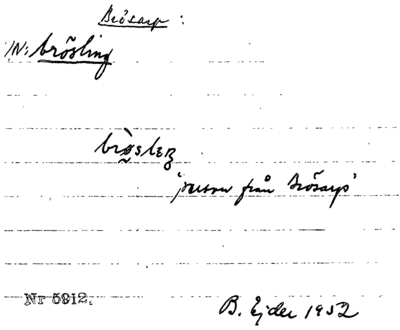 Brösarp :
IN: brösling
'person från Brösarp'
Nr 5912.
B. Ejder 1952